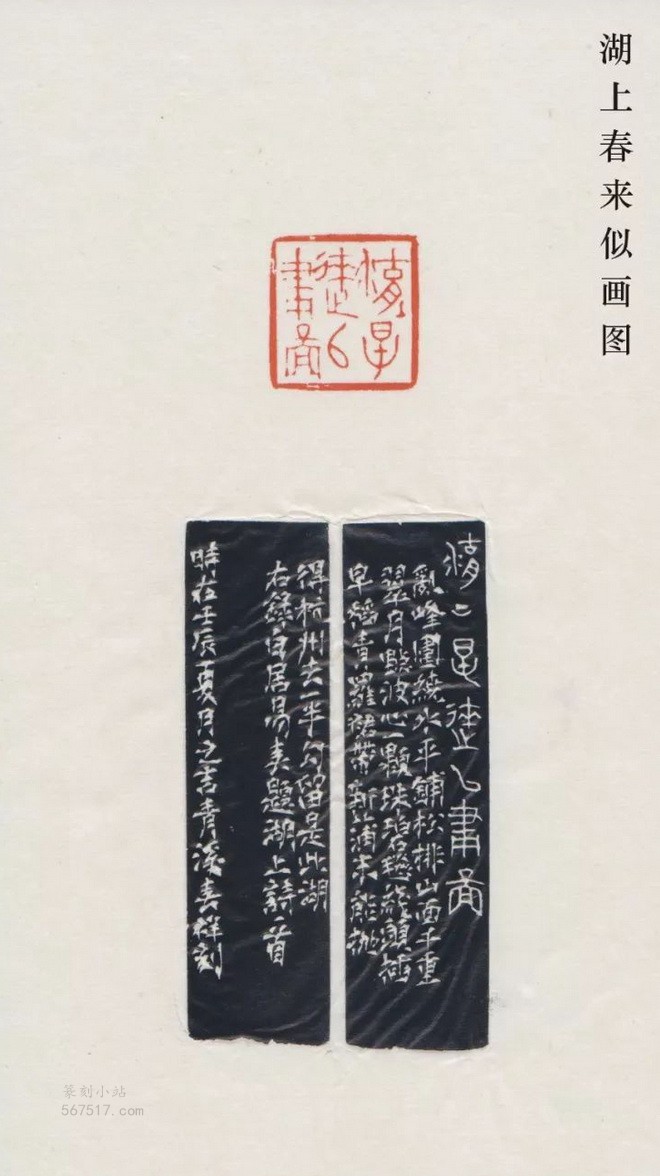 湖上春来似画图
湖上春來㠯畫圖
湖上春來㠯畫圖
亂峰圍繞水平鋪松排山面千重
翠月點波心一顆珠碧毯線頭抽
早稻青羅裙帶新蒲未能抛
得杭州去一半勾留是此湖
右錄白居易春題湖上詩一首
時在壬辰夏月之吉青溪春祥刻
篆刻小站
567517.com